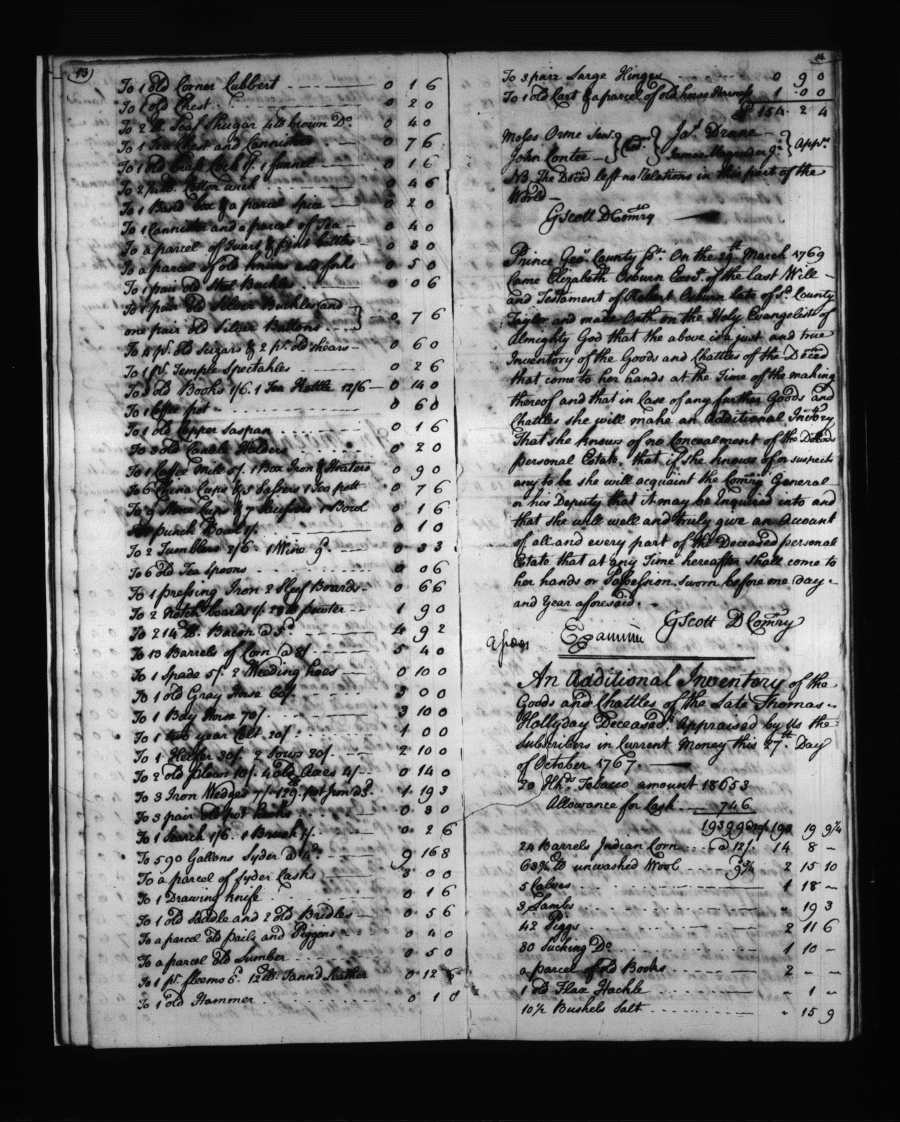 13
To 1 old Corner Cubbert 0 1 6
To 1 old Chest 0 2 0
To 2 lb. Loaf Shugar 4 lb brown Do. 0 4 0
To 1 Tea Chest and Cannisters 0 7 6
To 1 old funnel 0 1 6
To 2 Cotton wick 0 4 6
To 1 Band box & a parcel Spice 0 2 0
To 1 Cannister and a parcel of Tea 0 4 0
To a parcel of Quart & pint bottles 0 3 0
To a parcel of old knives and forks 0 5 0
To 1 pair old Steel Buckles 0 0 6
To 1 pair old Silver Buckles and
one pair old Silver Buttons } 0 7 6
To 4 pr. old Scizars & 2 pr. old shears 0 6 0
To 1 pr. Temple Spectables 0 2 6
To old Books 1/6. 1 Tea Kettle 12/6 0 14 0
To 1 Coffee pot 0 6 0
To 1 old Copper Saspan 0 1 6
To 3 old Candle Holders 0 2 0
To 1 Coffee Mill 5/. 1 Box Iron & Heaters 0 9 0
To 6 China Cups & 5 Sassers 1 Tea pott 0 7 6
To 9 Stone Cups & 7 Saussers 1 Bowl 0 1 6
To punch Bowl 1/. 0 1 0
To 2 Tumblers 2/6. 1 Wine g. 0 3 3
To 6 old Tea Spoons 0 0 6
To 1 pressing Iron 2 Sleef Boards 0 6 6
To 2 Notch boards 1/. 28 lb pewter 1 9 0
To 214 lb. Bacon @ 5d. 4 9 2
To 13 Barrels of Corn @ 8/. 5 4 0
To 1 Spade 5/. 2 Weeding hoes 0 10 0
To 1 old Gray Horse 60/. 3 0 0
To 1 Bay Horse 70/. 3 10 0
To 1 two year Colt 20/. 1 0 0
To 1 Heifer 30/. 2 Cows 20/. 2 10 0
To 2 old plows 10/. 4 old Axes 4/. 0 14 0
To 3 Iron Wedges 7/. 129. pot Iron @ 1 19 3
To 3 pair old pot hooks 0 3 0
To 1 Search 1/6. 1 Broad 1/. 0 2 6
To 590 Gallons Syder @ 4d. 9 16 8
To a parcel of Syder Casks 3 0 0
To 1 Drawing knife 0 1 6
To 1 old Saddle and 2 old Bridles 0 5 6
To a parcel old pails and Piggens 0 4 0
To a parcel old Lumber 0 5 0
To 1 pr. fleems 6d. 12 lb. Tann'd Leather 0 12 6
To 1 old Hammer 0 1 0
14
To 3 parr Large Hinges 0 9 0
To 1 old Cart & a parcel of old horse Harness 1 0 0
£ 154 2 4
Moses Orme Senr. } Cred. { Jas. Drane } Apprs.
John Contee James Magruder Jr.
NB. The Deced left no Relations in this part of the
World
GScott D Comry
Prince Geos. County Sst. On the 29th March 1769
Came Elizabeth Osburn Exect. of the Last Will
and Testament of Robert Osburn late of Sd. County
Taylor and made Oath on the Holy Evangelist of
Almighty God that the above is a just and true
Inventory of the Goods and Chattles of the Deced
that come to her hands at the Time of the making
thereof and that in Case of any further Goods and
Chattles she will make an Additional Invtory
That she knows of no Concealment of the Deceds
personal Estate, that if she knows of or suspects
any to be she will acquaint the Comry General
or his Deputy that it may be Enquired into and
that she will well and truly give an Account
of all and every part of the Deceased personal
Estate that at any Time hereafter shall come to
her hands or Possession. Sworn before me day
and Year aforesaid.
GScott D Comry
Examind
An Additional Inventory of the
Goods and Chattles of the Late Thomas
Hollyday Deceased. Appraised by Us the
Subscribers in Current Money this 27th. Day
of October 1767.
20 Hhds Tobacco amount 18653
Allowance for Cask 746
19399 @ 20/ 193 19 9¼
24 Barrels Indian Corn @ 12/. 14 8 -
63¾ lb unwashed Wool 2 15 10
5 Calves 1 18 -
3 Lambs " 19 3
42 Piggs 2 11 6
30 Sucking Do. 1 10 -
a parcel of old Books 2 - -
1 old Flax Hackle - 1 -
10½ Bushels Salt " 15 9